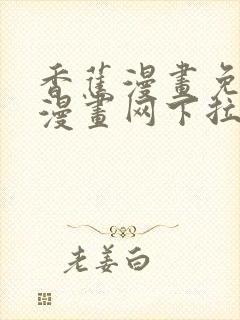 香蕉漫畫免
漫畫网下拉
老姜白